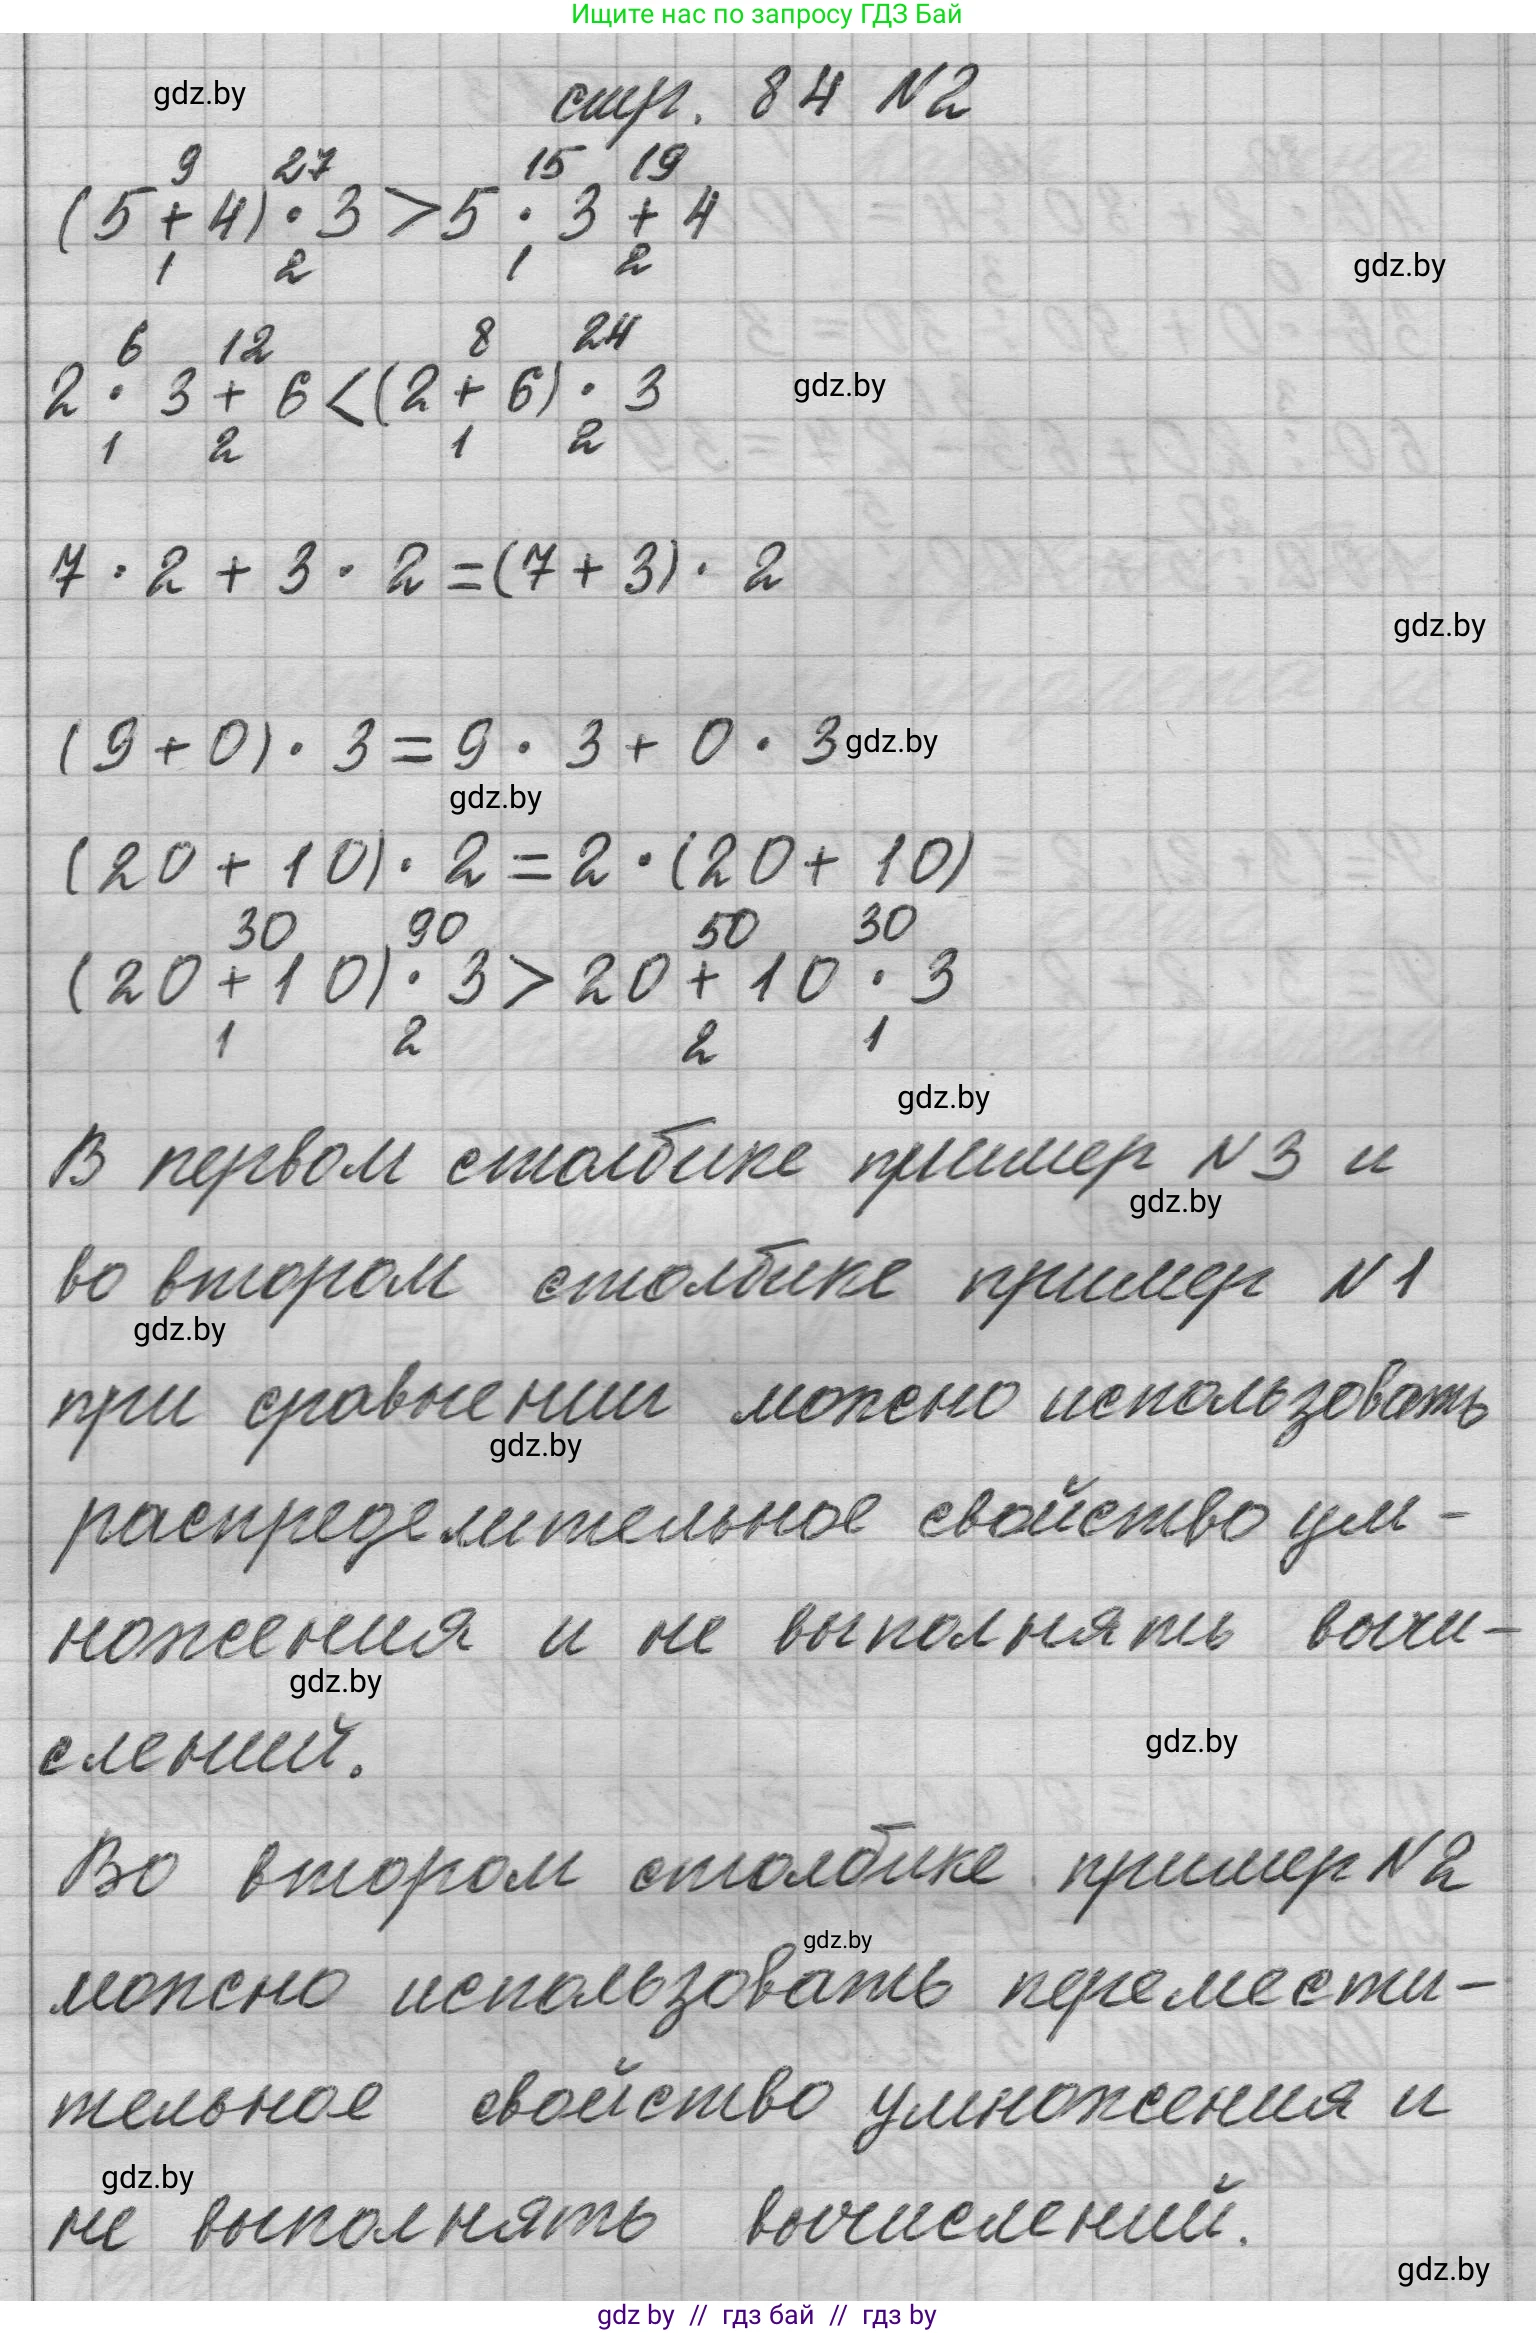 Ищите нас по запросу ГДЗ Бай
gdz.by
стр. 84 N2
9 27 15 19
(5 + 4) · 3 > 5 · 3 + 4
1 2 1 2
gdz.by
6 12 8 24
2 · 3 + 6 < (2 + 6) · 3
gdz.by
1 2 1 2
7 · 2 + 3 · 2 = (7 + 3) · 2
gdz.by
(9 + 0) · 3 = 9 · 3 + 0 · 3
gdz.by
gdz.by
(20 + 10) · 2 = 2 · (20 + 10)
30 90 50 30
(20 + 10) · 3 > 20 + 10 · 3
1 2 2 1
gdz.by
В первом столбике пример N3 и
gdz.by
во втором столбике пример N1
gdz.by
при сравнении можно использовать
gdz.by
распределительное свойство ум-
ножения и не выполнять вычи-
gdz.by
слений.
gdz.by
Во втором столбике пример N2
gdz.by
можно использовать перемести-
тельное свойство умножения и
gdz.by
не выполнять вычислений.
gdz.by
gdz by // гдз бай // гдз by